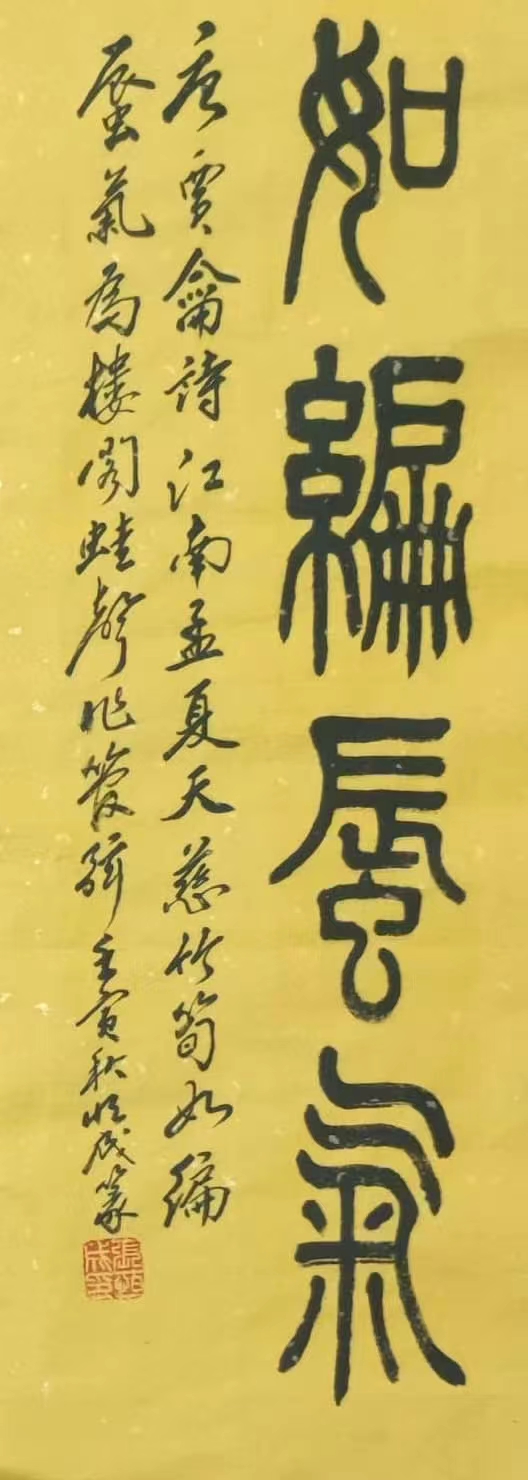 如編蜃氣
唐賈龠詩江南孟夏天慈竹筍如編
蜃氣為樓閣蛙聲作管絃壬寅秋成篆